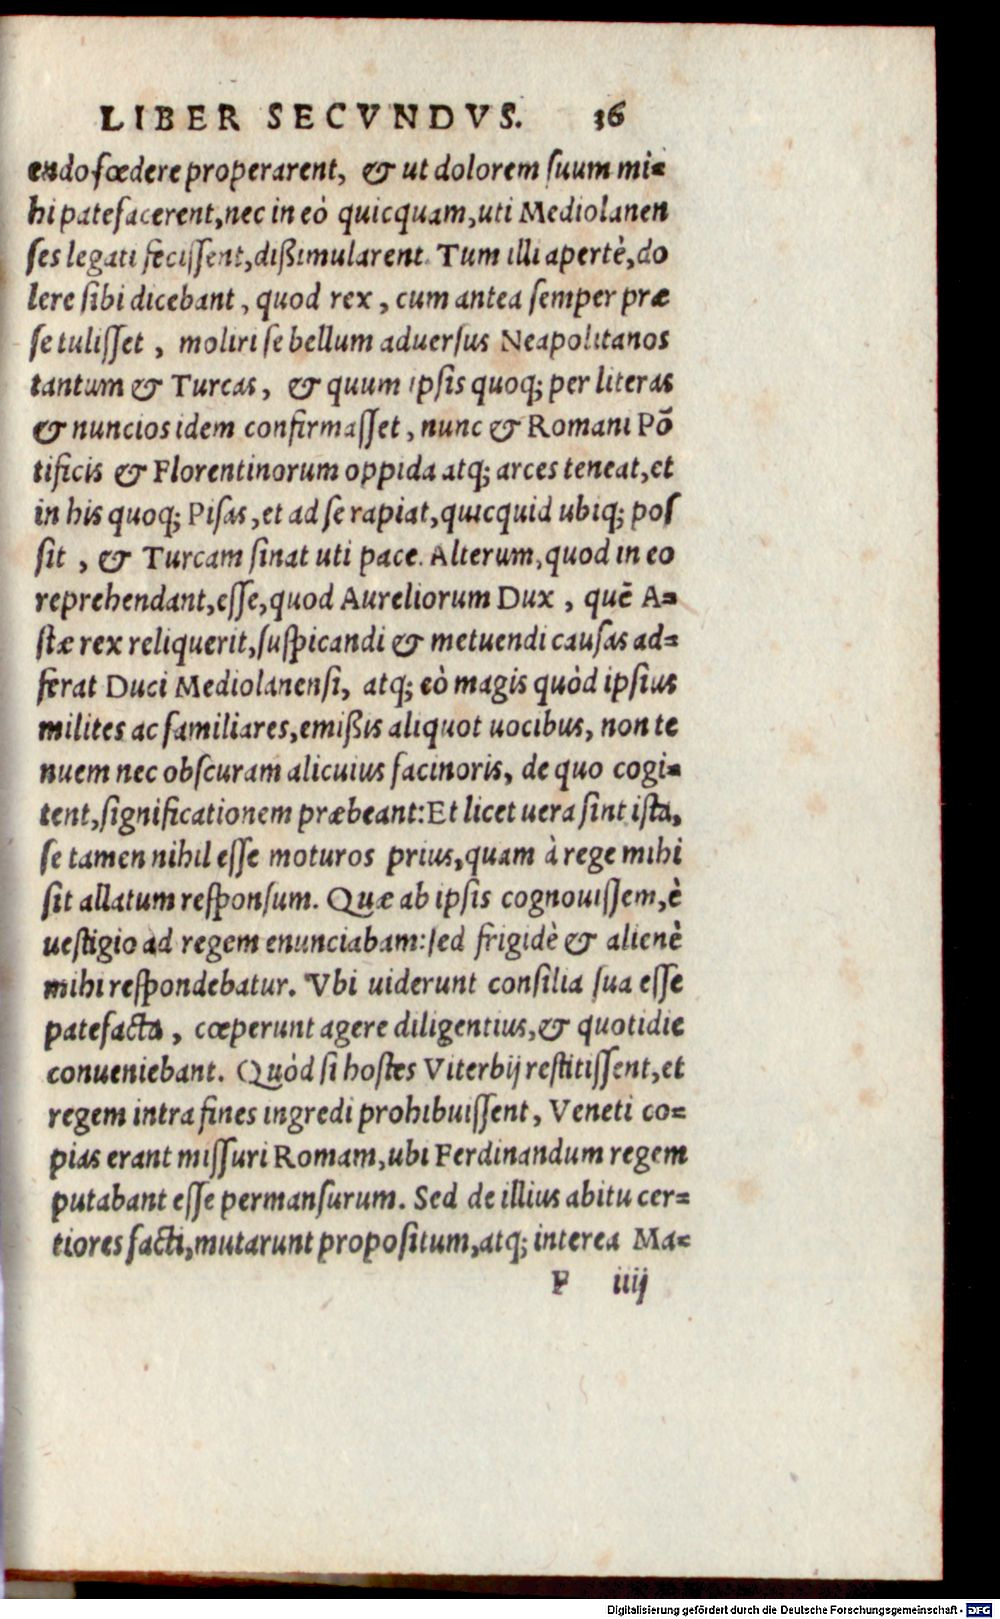 LIBER SECVNDVS. 36
endo fœdere properarent, & ut dolorem ſuum mi-
hi patefacerent, nec in eò quicquam, uti Mediolanen
ſes legati feciſſent, dißimularent. Tum illi apertè, do
lere ſibi dicebant, quod rex, cum antea ſemper præ
ſe tuliſſet, moliri ſe bellum aduerſus Neapolitanos
tantum & Turcas, & quum ipſis quoq; per literas
& nuncios idem confirmaſſet, nunc & Romani Põ
tificis & Florentinorum oppida atq; arces teneat, et
in his quoq; Piſas, et ad ſe rapiat, quicquid ubiq; poſ
ſit, & Turcam ſinat uti pace. Alterum, quod in eo
reprehendant, eſſe, quod Aureliorum Dux, quē A-
ſtæ rex reliquerit, ſuſpicandi & metuendi cauſas ad-
ferat Duci Mediolanenſi, atq; eò magis quòd ipſius
milites ac familiares, emißis aliquot uocibus, non te
nuem nec obſcuram alicuius facinoris, de quo cogi-
tent, ſignificationem præbeant: Et licet uera ſint iſta,
ſe tamen nihil eſſe moturos prius, quam à rege mihi
ſit allatum reſponſum. Quæ ab ipſis cognouiſſem, è
ueſtigio ad regem enunciabam: ſed frigidè & alienè
mihi reſpondebatur. Vbi uiderunt conſilia ſua eſſe
patefacta, cœperunt agere diligentius, & quotidie
conueniebant. Quòd ſi hoſtes Viterbij reſtitiſſent, et
regem intra fines ingredi prohibuiſſent, Veneti co-
pias erant miſſuri Romam, ubi Ferdinandum regem
putabant eſſe permanſurum. Sed de illius abitu cer-
tiores facti, mutarunt propoſitum, atq; interea Ma-
F iiij
Digitalisierung gefördert durch die Deutsche Forschungsgemeinschaft - DFG